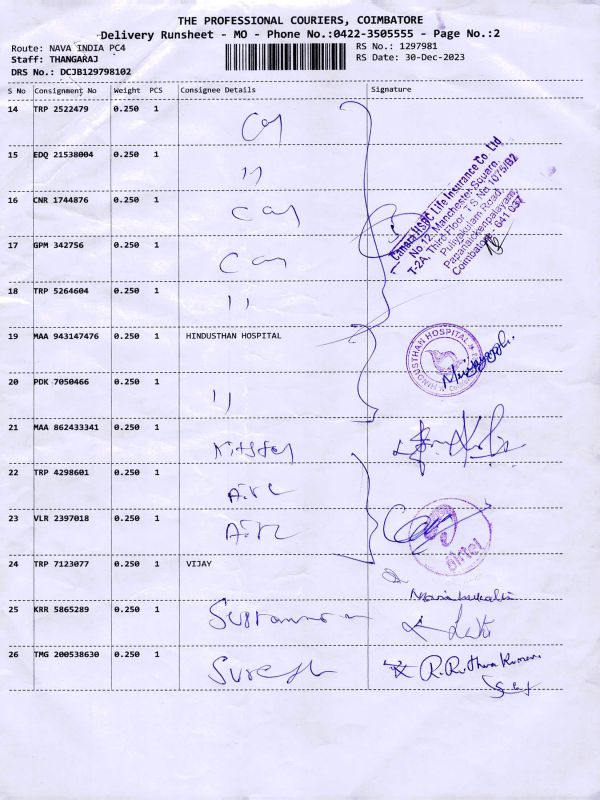 THE PROFESSIONAL COURIERS, COIMBATORE
Delivery Runsheet - MO - Phone No.:0422-3505555 - Page No.:2
Route: NAVA INDIA PC4
RS No.: 1297981
Staff: THANGARAJ
RS Date: 30-Dec-2023
DRS No.: DCJB129798102
S No Consignment No Weight PCS Consignee Details Signature
14 TRP 2522479 0.250 1
15 EDQ 21538004 0.250 1 "
16 CNR 1744876 0.250 1
17 GPM 342756 0.250 1
18 TRP 5264604 0.250 1 "
Canara HSBC Life Insurance Co. Ltd
No 12, Manchester Square,
T-2A, Third Floor, T.S. No 1075/B2
Puliyakulam Road,
Papanaickenpalayam,
Coimbatore - 641 037
19 MAA 943147476 0.250 1 HINDUSTHAN HOSPITAL
HINDUSTHAN HOSPITAL
20 PDK 7050466 0.250 1 "
21 MAA 862433341 0.250 1
22 TRP 4298601 0.250 1
23 VLR 2397018 0.250 1
airtel
24 TRP 7123077 0.250 1 VIJAY
25 KRR 5865289 0.250 1
26 TMG 200538630 0.250 1 Suresh